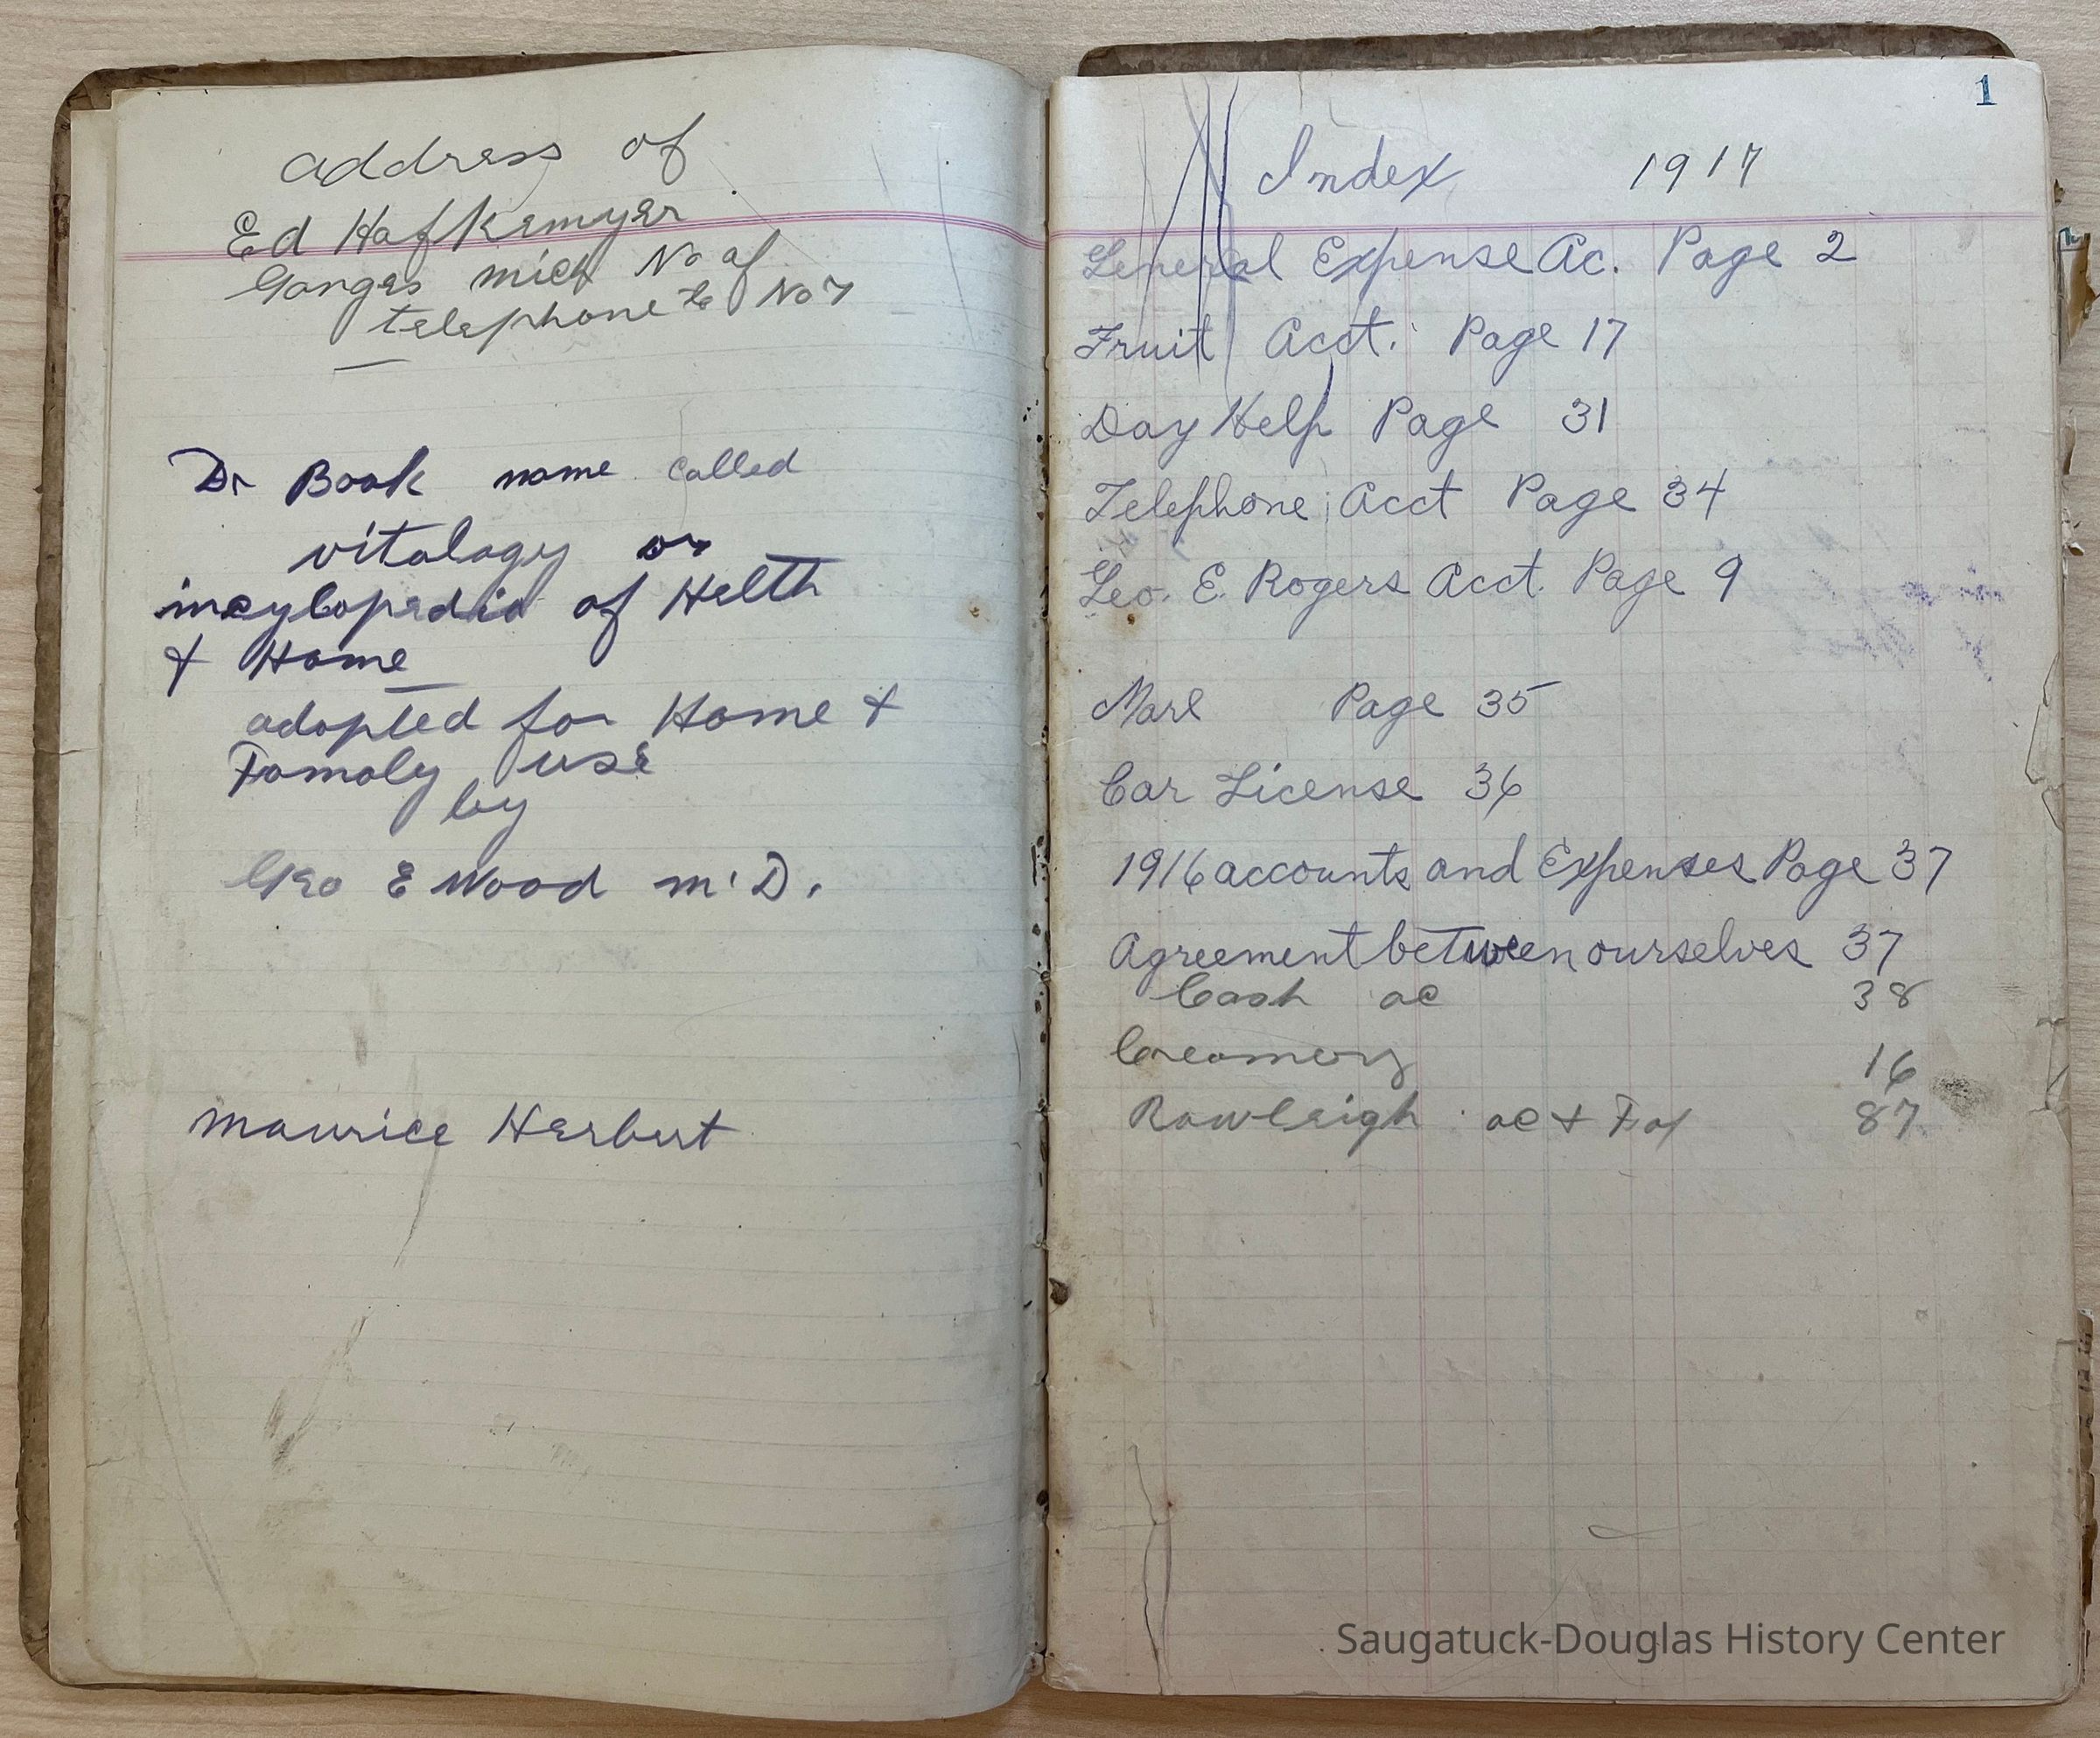 address of
Ed Hofkemyer
Ganges mich No of
telephone to No 7
Dr Book name called
vitalogy or
incylopedia of Helth
& Home
adopted for Home &
Famaly use
by
Geo E Wood m.D.
maurice Herbert
1
Index 1917
General Expense Ac. Page 2
Fruit Acct. Page 17
Day Help Page 31
Telephone Acct Page 34
Geo. E. Rogers Acct. Page 9
Marl Page 35
Car License 36
1916 accounts and Expenses Page 37
Agreement between ourselves 37
Cash ac 38
Creamery 16
Rawleigh ac &  87
Saugatuck-Douglas History Center